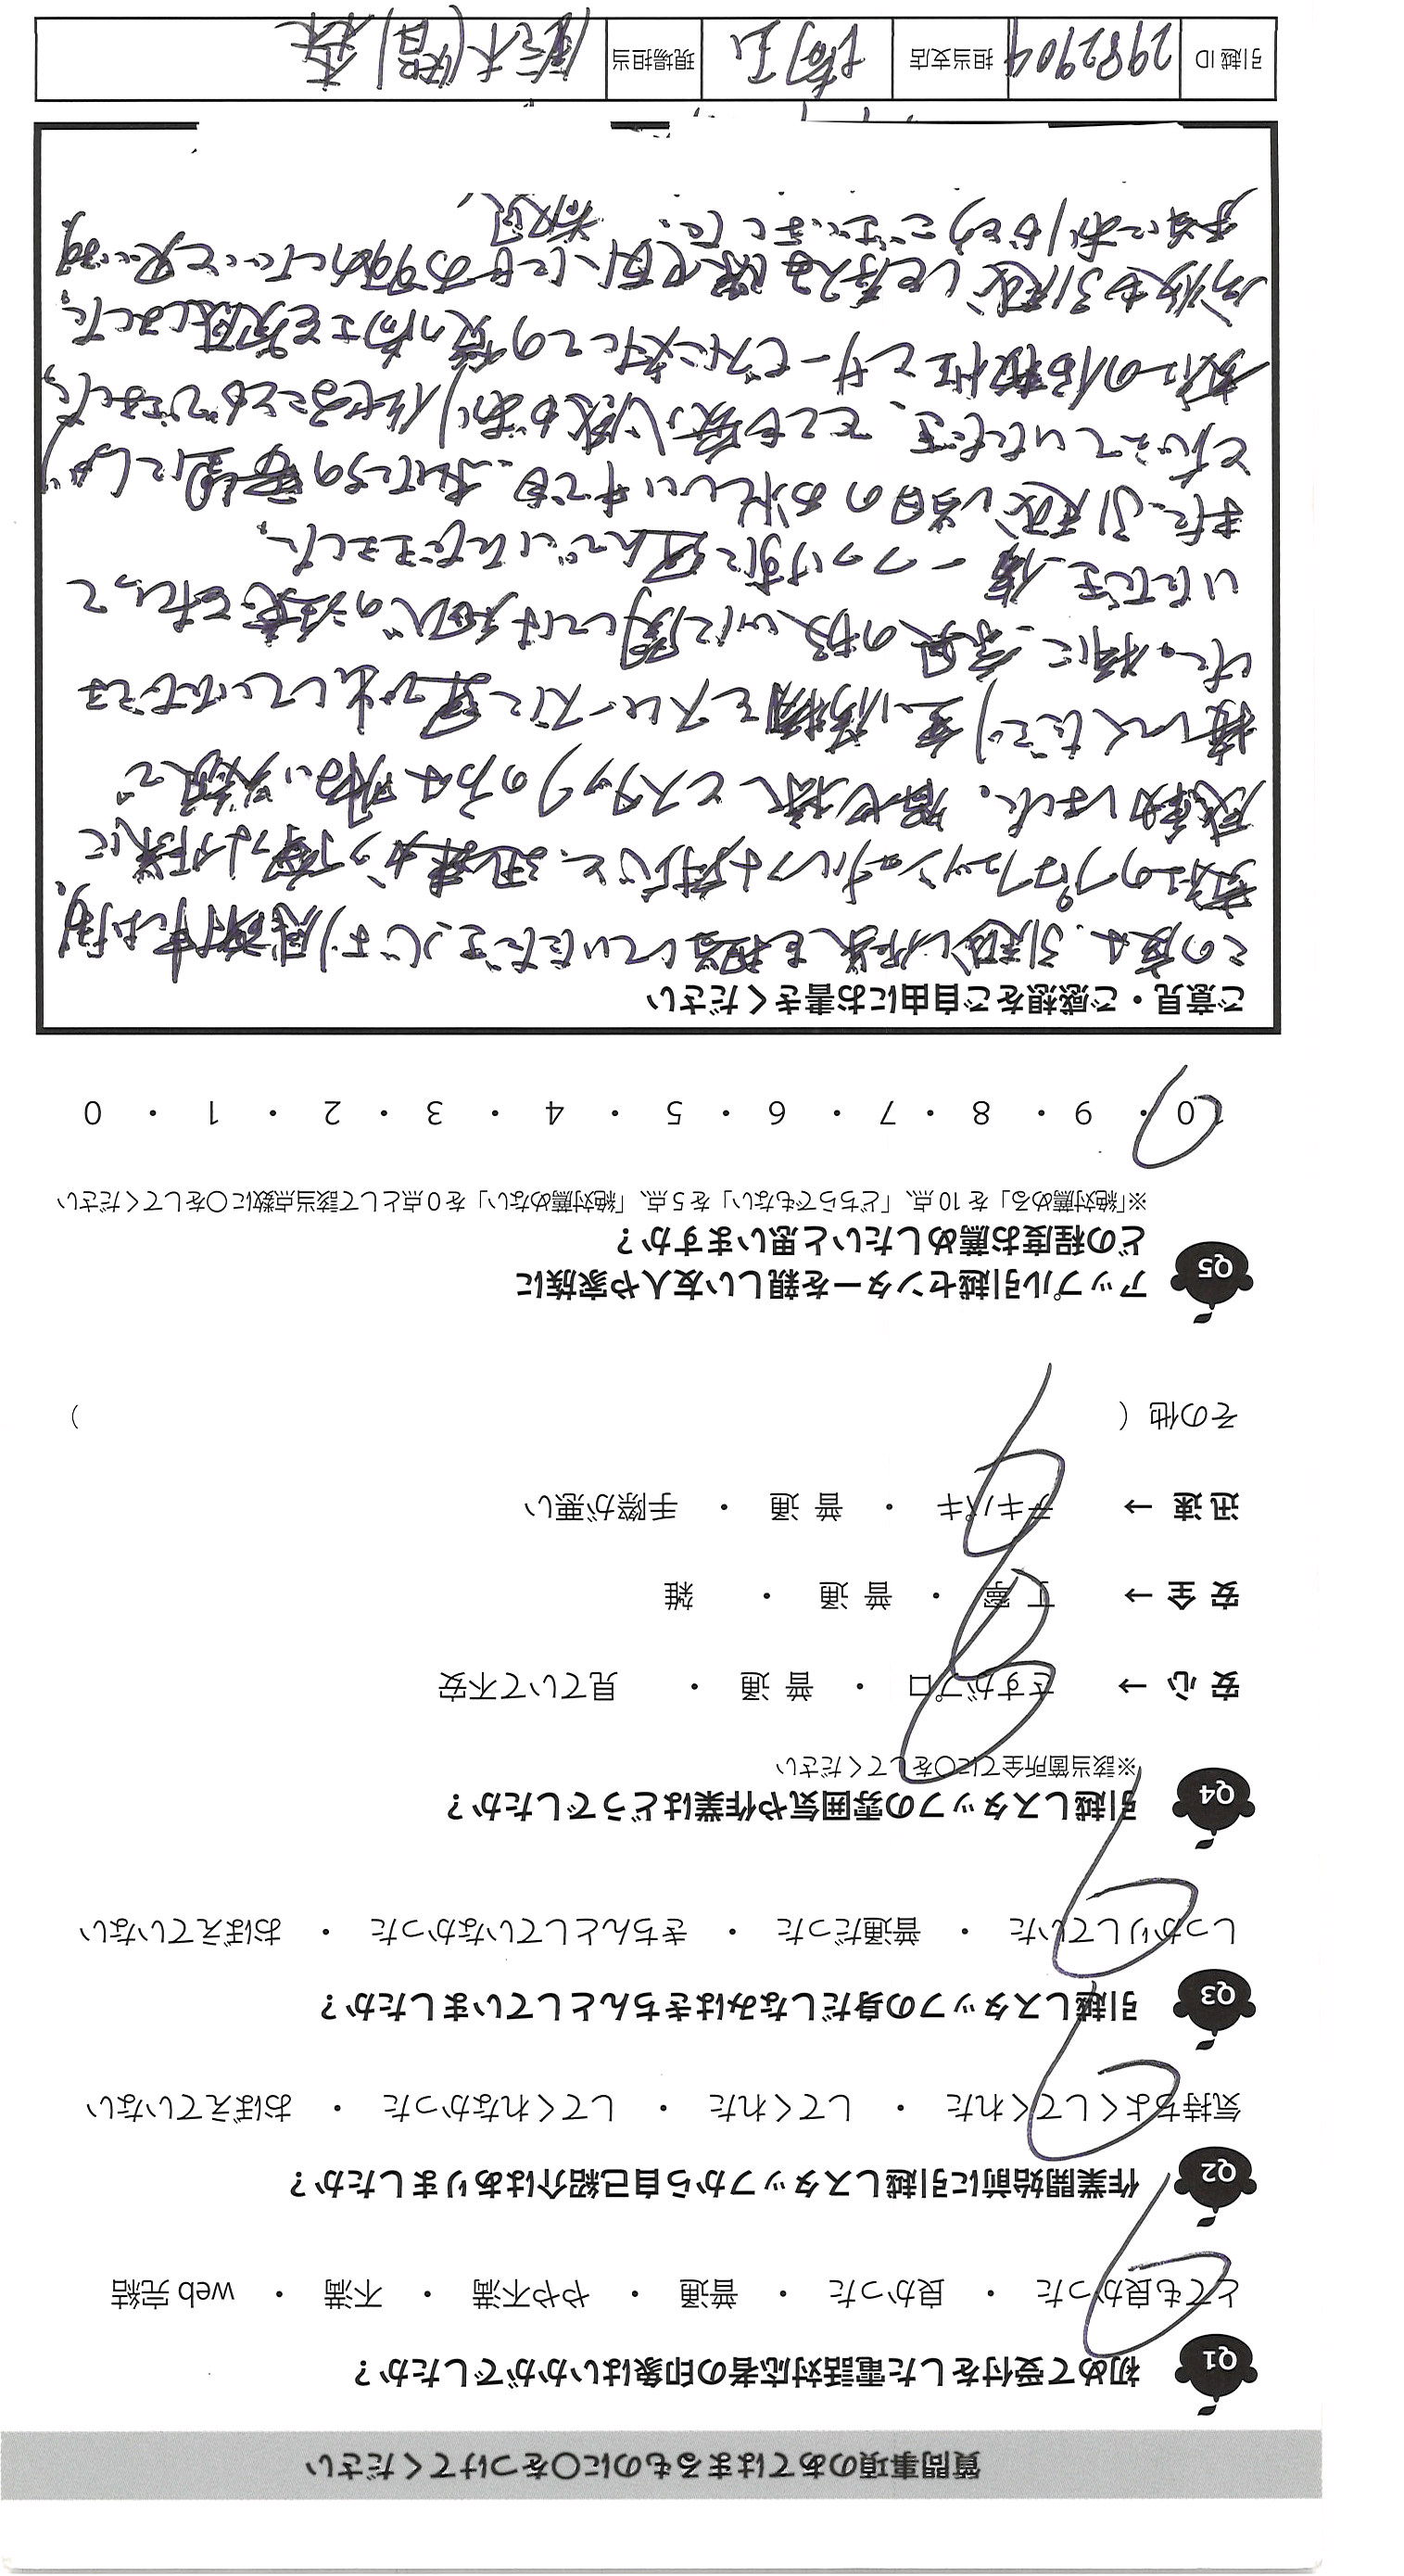 質問事項のあてはまるものに○をつけてください
Q1 初めて受付をした電話対応者の印象はいかがでしたか？
とても良かった ・ 良かった ・ 普通 ・ やや不満 ・ 不満 ・ web 完結
Q2 作業開始前に引越しスタッフから自己紹介はありましたか？
気持ちよくしてくれた ・ してくれた ・ してくれなかった ・ おぼえていない
Q3 引越しスタッフの身だしなみはきちんとしていましたか？
しっかりしていた ・ 普通だった ・ きちんとしていなかった ・ おぼえていない
Q4 引越しスタッフの雰囲気や作業はどうでしたか？
※該当箇所全てに○をしてください
安心 → さすがプロ ・ 普通 ・ 見ていて不安
安全 → 丁寧 ・ 普通 ・ 雑
迅速 → テキパキ ・ 普通 ・ 手際が悪い
その他（ ）
Q5 アップル引越センターを親しい友人や家族に
どの程度お薦めしたいと思いますか？
※「絶対薦める」を10点、「どちらでもない」を5点、「絶対薦めない」を0点として該当点数に○をしてください
10 ・ 9 ・ 8 ・ 7 ・ 6 ・ 5 ・ 4 ・ 3 ・ 2 ・ 1 ・ 0
ご意見・ご感想をご自由にお書きください
この度は、引越し作業を担当していただき、心より感謝申し上げます。
貴社のプロフェッショナルな対応と、迅速かつ丁寧な作業に
感動しました。スタッフの方は明るい笑顔で
接してくださり、重い荷物をスムーズに運び出していただきま
した。特に、家具の扱いに関しては細心の注意をはらって
いただき、傷一つつけずに運んでいただきました。
また、引越し当日のお忙しい中でも、私たちの要望にしっかり
と応えていただき、とても安心感があり任せることができました。
貴社の信頼性とサービスに対しての質の高さを実感しました。
今後も引越しを考える際や友人にぜひお勧めしたいと思います。
本当にありがとうございました。 敬具
引越ID 2982904 担当支店 埼玉 現場担当